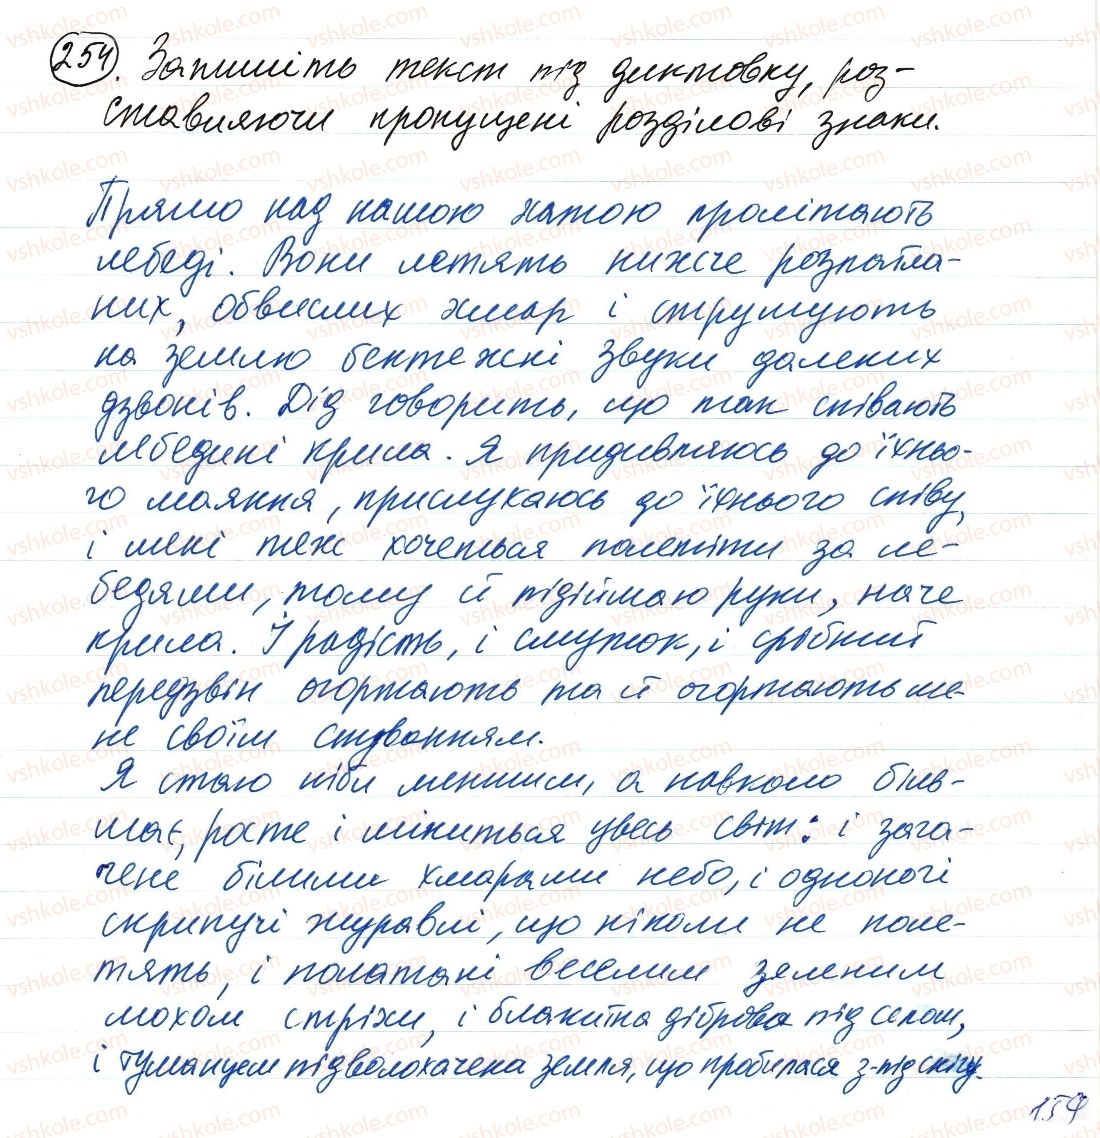 254. Запишіть текст під диктовку, роз-
ставляючи пропущені розділові знаки.
Прямо над нашою хатою пролітають
лебеді. Вони летять нижче розпатла-
них, обвислих хмар і струмують
на землю бентежні звуки далеких
дзвонів. Дід говорить, що так співають
лебедині крила. Я придивляюсь до їхньо-
го маяння, прислухаюсь до їхнього співу,
і мені теж хочеться полетіти за ле-
бедями, тому й підіймаю руки, наче
крила. І радість, і смуток, і срібний
передзвін огортають та й огортають ме-
не своїм снуванням.
Я стаю ніби меншим, а навколо біль-
шає, росте і міниться увесь світ: і зага-
чене білими хмарами небо, і одноногі
скрипучі журавлі, що ніколи не поле-
тять, і полатані веселим зеленим
мохом стріхи, і блакитна діброва під селом,
і туманцем підволохачена земля, що пробилася з-під снігу.
159